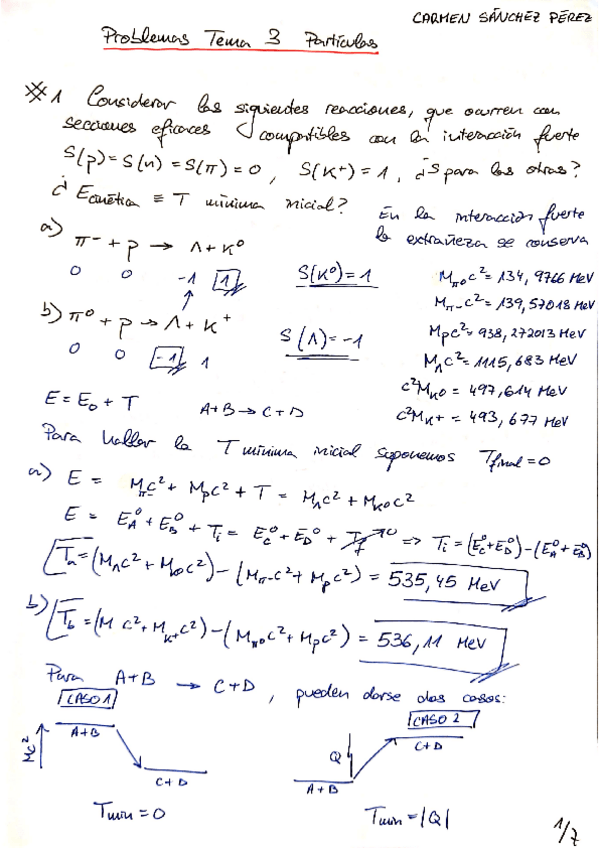 CARMEN SÁNCHEZ PÉREZ
Problemas Tema 3 Partículas
※1 Considerar las siguientes reacciones, que ocurren con
secciones eficaces compatibles con la interacción fuerte
S(p)=S(n)=S(π)=0, S(K⁺)=1, ¿S para las otras?
¿Ecinética ≡ T mínima inicial?
En la interacción fuerte
la extrañeza se conserva
a) π⁻ + p → Λ + K⁰
0 0 -1 1
S(K⁰)=1
b) π⁰ + p → Λ + K⁺
0 0 -1 1
S(Λ)=-1
Mπ⁰c² = 134,9766 MeV
Mπ-c² = 139,57018 MeV
Mpc² = 938,272013 MeV
MΛc² = 1115,683 MeV
c²MK⁰ = 497,614 MeV
c²MK+ = 493,677 MeV
E = E₀ + T A+B → C+D
Para hallar la T mínima inicial suponemos Tfinal=0
a) E = Mπ-c² + Mpc² + T = MΛc² + MK⁰c²
E = E_A⁰ + E_B⁰ + Ti = E_C⁰ + E_D⁰ + T_f→0 => Ti = (E_C⁰+E_D⁰)-(E_A⁰+E_B⁰)
Ta = (MΛc² + MK⁰c²) - (Mπ-c² + Mpc²) = 535,45 MeV
b) Tb = (M c² + MK+c²) - (Mπ⁰c² + Mpc²) = 536,11 MeV
Para A+B → C+D, pueden darse dos casos:
CASO 1
CASO 2
Mc²
A+B
C+D
Q
C+D
A+B
Tmin = 0
Tmin = |Q|
1/7